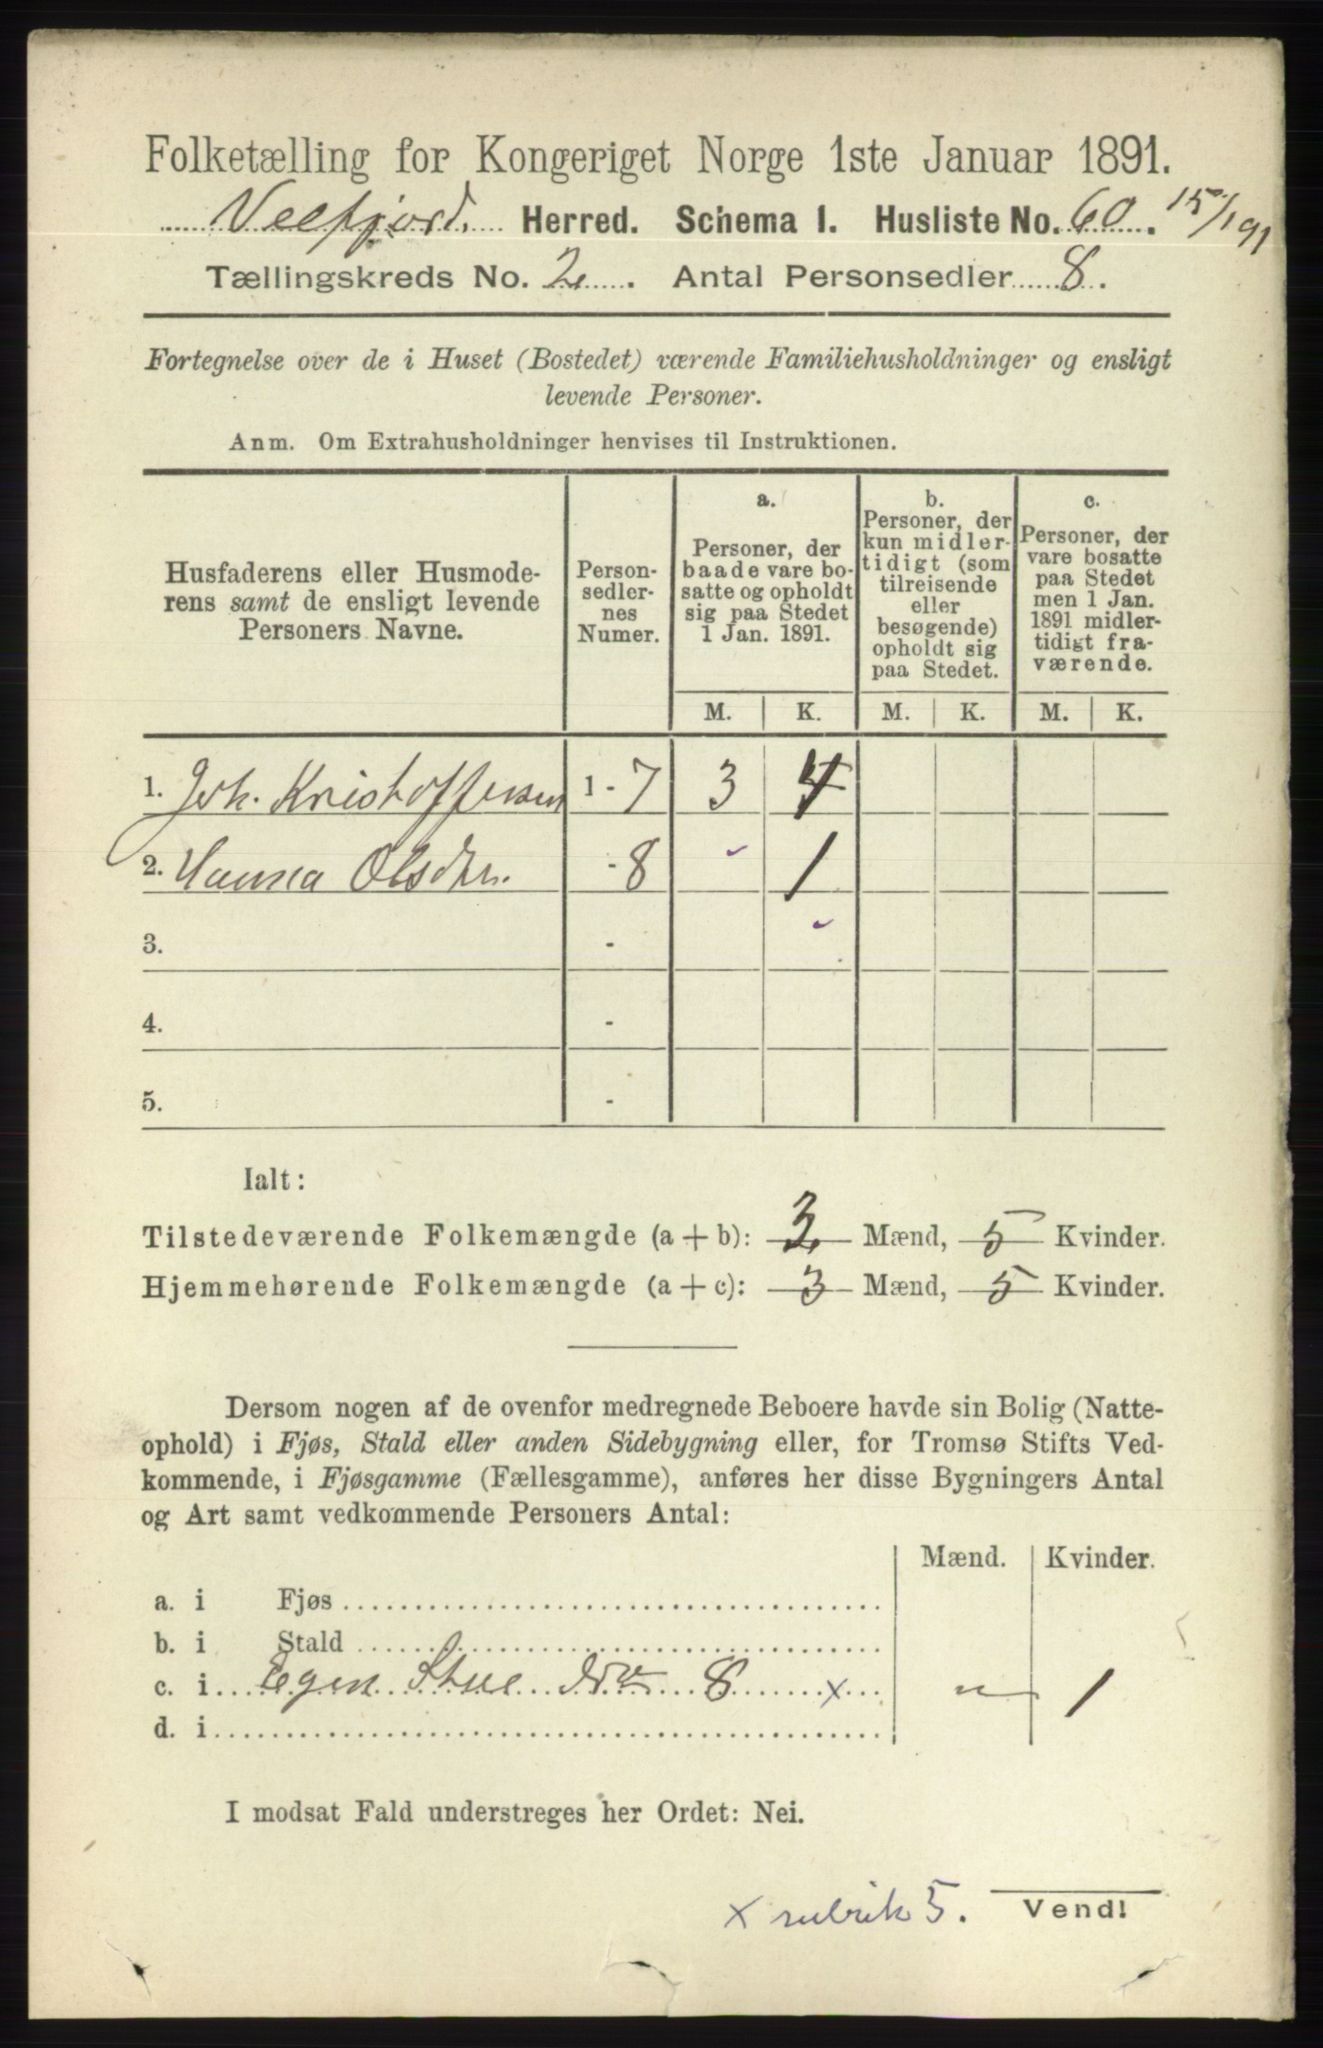 Folketælling for Kongeriget Norge 1ste Januar 1891.
Velfjord Herred. Schema 1. Husliste No. 60. 15/1 91
Tællingskreds No. 2. Antal Personsedler 8.
Fortegnelse over de i Huset (Bostedet) værende Familiehusholdninger og ensligt
levende Personer.
Anm. Om Extrahusholdninger henvises til Instruktionen.
Husfaderens eller Husmode-
rens samt de ensligt levende
Personers Navne.
Person-
sedler-
nes
Numer.
a.
Personer, der
baade vare bo-
satte og opholdt
sig paa Stedet
1 Jan. 1891.
b.
Personer, der
kun midler-
tidigt (som
tilreisende
eller
besøgende)
opholdt sig
paa Stedet.
c.
Personer, der
vare bosatte
paa Stedet
men 1 Jan.
1891 midler-
tidigt fra-
værende.
M. K. M. K. M. K.
1. Joh. Kristoffersen 1 - 7 3 4
2. Hansea Olsdtr. - 8 1
3. -
4. -
5. -
Ialt:
Tilstedeværende Folkemængde (a + b): 3 Mænd, 5 Kvinder.
Hjemmehørende Folkemængde (a + c): 3 Mænd, 5 Kvinder.
Dersom nogen af de ovenfor medregnede Beboere havde sin Bolig (Natte-
ophold) i Fjøs, Stald eller anden Sidebygning eller, for Tromsø Stifts Ved-
kommende, i Fjøsgamme (Fællesgamme), anføres her disse Bygningers Antal
og Art samt vedkommende Personers Antal:
Mænd. Kvinder.
a. i Fjøs
b. i Stald
c. i Egen Stue No 8 x " 1
d. i
I modsat Fald understreges her Ordet: Nei.
x rubrik 5. Vend!